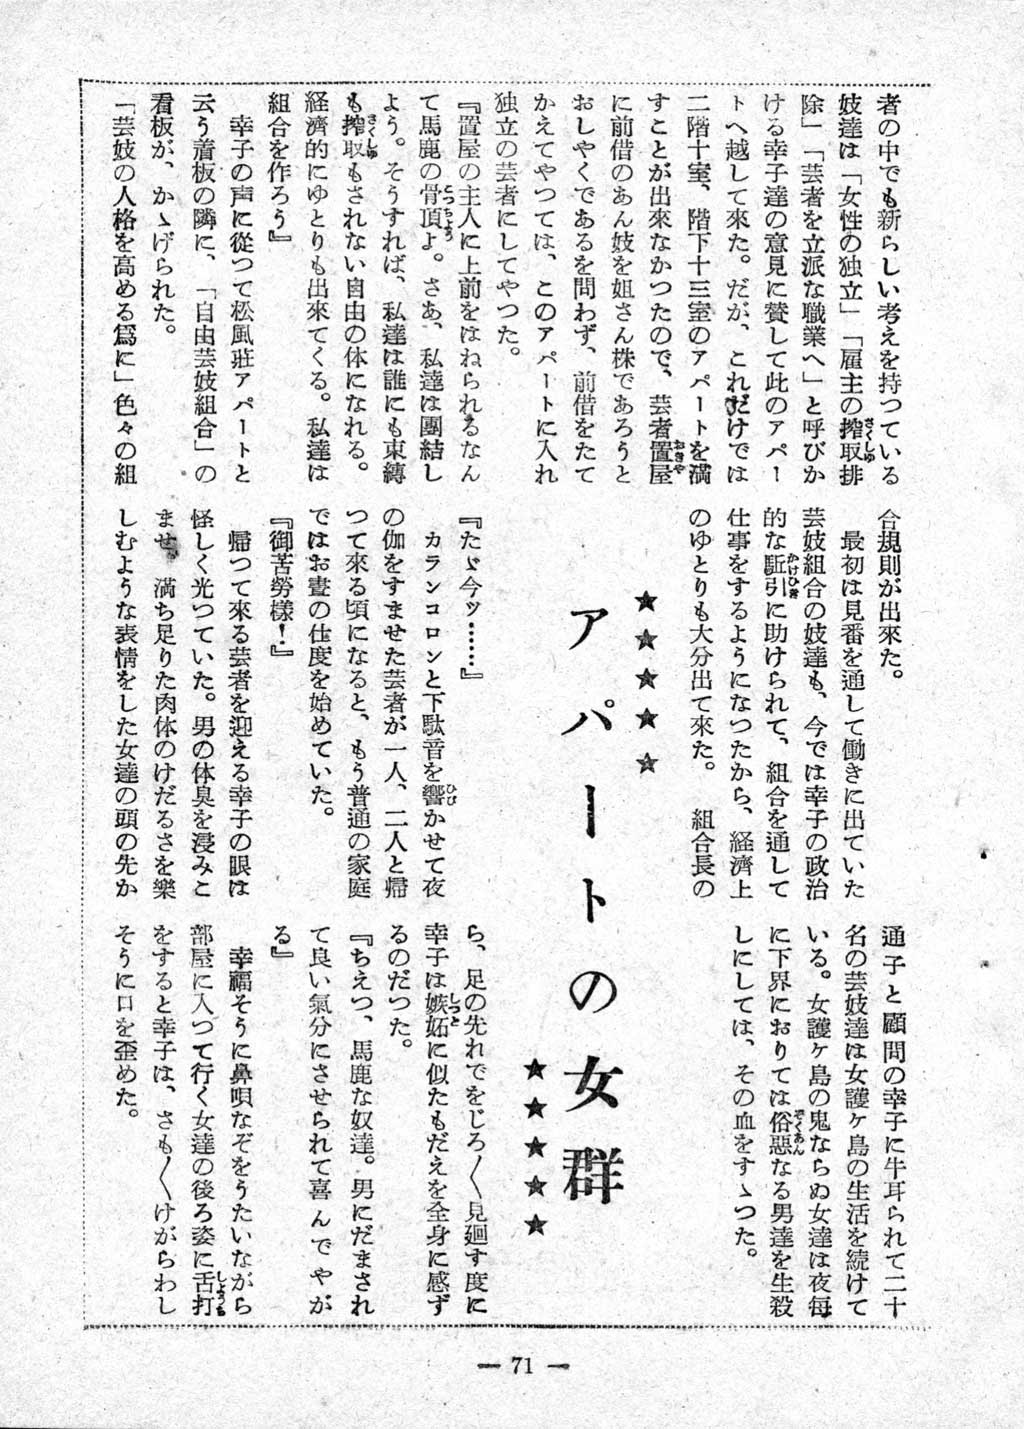 者の中でも新らしい考えを持つている
妓達は「女性の独立」「雇主の搾取排
除」「芸者を立派な職業へ」と呼びか
ける幸子達の意見に賛して此のアパー
トへ越して来た。だが、これだけでは
二階十室、階下十三室のアパートを満
すことが出来なかつたので、芸者置屋
に前借のあん妓を姐さん株であろうと
おしやくであるを問わず、前借をたて
かえてやつては、このアパートに入れ
独立の芸者にしてやつた。
『置屋の主人に上前をはねられるなん
て馬鹿の骨頂よ。さあ、私達は團結し
よう。そうすれば、私達は誰にも束縛
も搾取もされない自由の体になれる。
経済的にゆとりも出来てくる。私達は
組合を作ろう』
幸子の声に從つて松風莊アパートと
云う看板の隣に、「自由芸妓組合」の
看板が、かゝげられた。
「芸妓の人格を高める爲に」色々の組
合規則が出來た。
最初は見番を通して働きに出ていた
芸妓組合の妓達も、今では幸子の政治
的な駈引に助けられて、組合を通して
仕事をするようになつたから、経済上
のゆとりも大分出て来た。　組合長の
★★★★★
アパートの女群
★★★★★
『たゞ今ッ……』
カランコロンと下駄音を響かせて夜
の伽をすませた芸者が一人、二人と帰
つて來る頃になると、もう普通の家庭
ではお晝の仕度を始めていた。
『御苦勞樣！』
帰つて來る芸者を迎える幸子の眼は
怪しく光つていた。男の体臭を浸みこ
ませ、満ち足りた肉体のけだるさを樂
しむような表情をした女達の頭の先か
通子と顧問の幸子に牛耳られて二十
名の芸妓達は女護ヶ島の生活を続けて
いる。女護ヶ島の鬼ならぬ女達は夜毎
に下界におりては俗悪なる男達を生殺
しにしては、その血をすゝつた。
ら、足の先れでをじろ〳〵見廻す度に
幸子は嫉妬に似たもだえを全身に感ず
るのだつた。
『ちえつ、馬鹿な奴達。男にだまされ
て良い氣分にさせられて喜んでやが
る』
幸福そうに鼻唄なぞをうたいながら
部屋に入つて行く女達の後ろ姿に舌打
をすると幸子は、さも〳〵けがらわし
そうに口を歪めた。
— 71 —